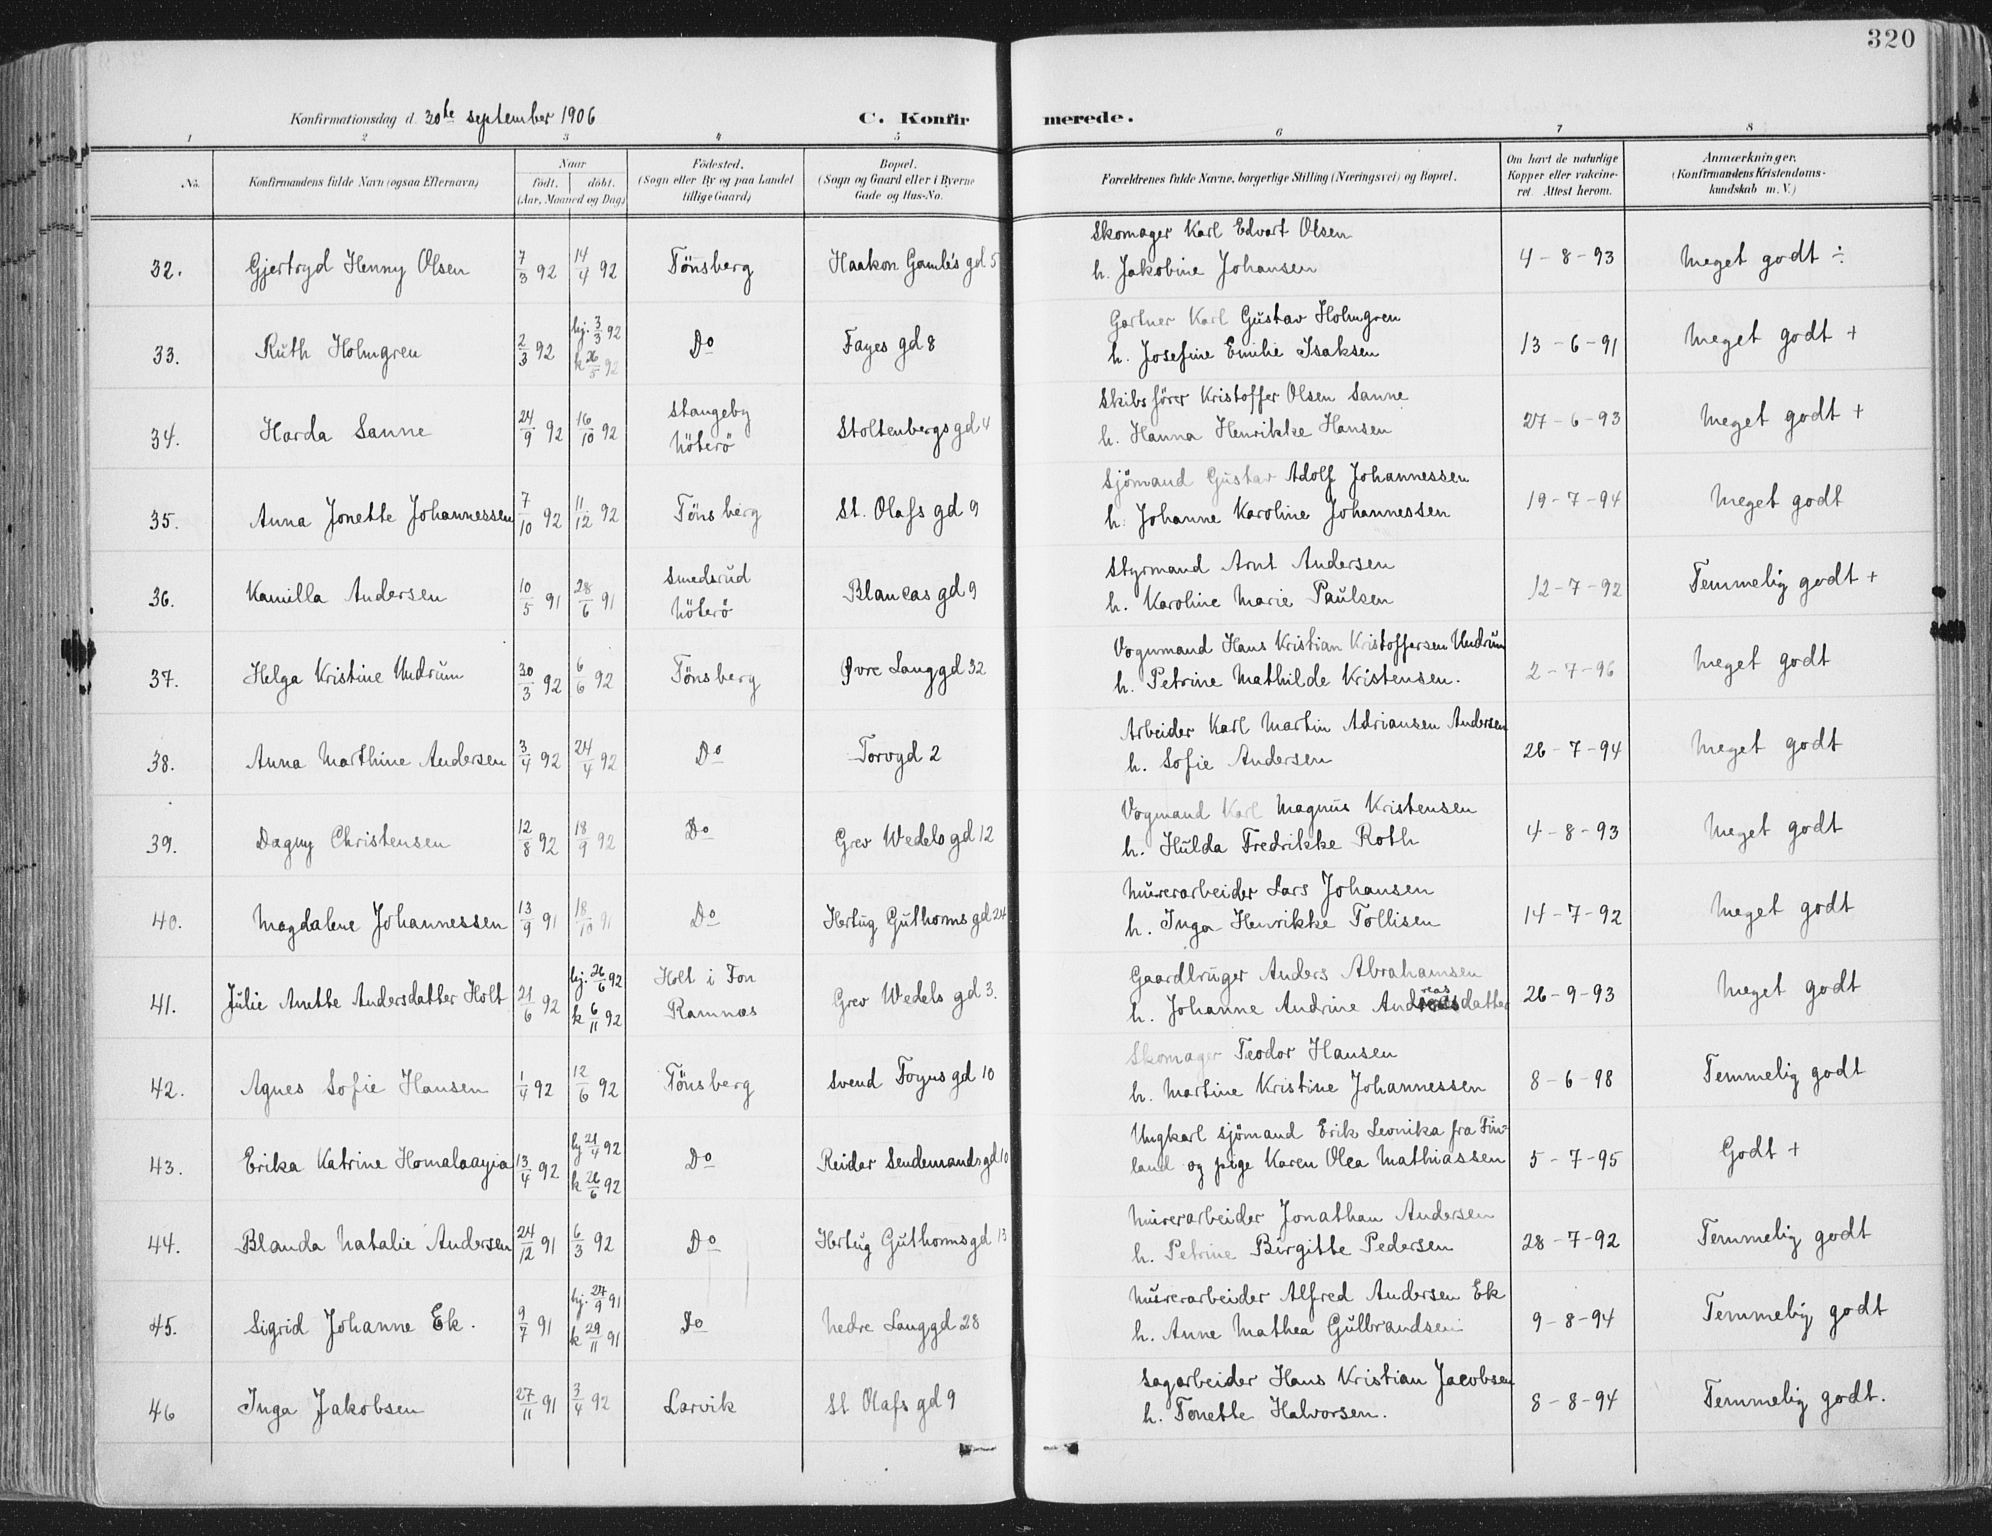 320
Konfirmationsdag d. 30te september 1906 C. Konfirmerede.
1 2 3 4 5 6 7 8
No. Konfirmandens fulde Navn (ogsaa Efternavn) Naar født. døbt. (Aar, Maaned og Dag) Födested. (Sogn eller By og paa Landet tillige Gaard) Bopæl. (Sogn og Gaard eller i Byerne Gade og Hus-No. Forældrenes fulde Navne, borgerlige Stilling (Næringsvei) og Bopæl. Om havt de naturlige Kopper eller vakcineret. Attest herom. Anmærkninger. (Konfirmandens Kristendomskundskab m. V.)
32. Gjertryd Henny Olsen 7/3 92 14/4 92 Tönsberg Haakon Gamles gd 5 Skomager Karl Edvart Olsen
h. Jakobine Johansen 4-8-93 Meget godt ÷
33. Ruth Holmgren 2/3 92 hj. 3/3 92 k 26/5 92 Do Fayes gd 8 Gartner Karl Gustav Holmgren
h. Josefine Emilie Isaksen 13-6-91 Meget godt +
34. Harda Sanne 24/9 92 16/10 92 Stangeby Nöterö Stoltenbergs gd 4 Skibsförer Kristoffer Olsen Sanne
h. Hanna Henrikke Hansen 27-6-93 Meget godt +
35. Anna Jonette Johannessen 7/10 92 11/12 92 Tönsberg St. Olafs gd 9 Sjömand Gustav Adolf Johannessen
h. Johanne Karoline Johannessen 19-7-94 Meget godt
36. Kamilla Andersen 10/5 91 28/6 91 Smedsrud Nöterö Blancas gd 9 Styrmand Arnt Andersen
h. Karoline Marie Paulsen 12-7-92 Temmelig godt +
37. Helga Kristine Undrum 30/3 92 6/6 92 Tönsberg Øvre Langgd 32 Vognmand Hans Kristian Kristoffersen Undrum
h. Petrine Mathilde Kristensen. 2-7-96 Meget godt
38. Anna Marthine Andersen 3/4 92 24/4 92 Do Torvgd 2 Arbeider Karl Martin Adriansen Andersen
h. Sofie Andersen 26-7-94 Meget godt
39. Dagny Christensen 12/8 92 18/9 92 Do Grev Wedels gd 12 Vogmand Karl Magnus Kristensen
h. Hulda Fredrikke Roth 4-8-93 Meget godt
40. Magdalene Johannessen 13/9 91 18/10 91 Do Hertug Guthorms gd 24 Murerarbeider Lars Johansen
h. Inga Henrikke Tollisen 14-7-92 Meget godt
41. Julie Anette Andersdatter Holt 21/6 92 hj. 26/6 92 k 6/11 92 Holt i Fon Ramnæs Grev Wedels gd 3. Gaardbruger Anders Abrahamsen
h. Johanne Andrine Andreasdatter 26-9-93 Meget godt
42. Agnes Sofie Hansen 1/4 92 12/6 92 Tönsberg Svend Foyns gd 10 Skomager Teodor Hansen
h. Martine Kristine Johannessen 8-6-98 Temmelig godt
43. Erika Katrine Homalaayia 13/4 92 hj 21/4 92 k 26/6 92 Do Reidar Sendemands gd 10 Ungkarl sjömand Erik Leonika fra Fin-
land og pige Karen Olea Mathiassen 5-7-95 Godt +
44. Blanda Natalie Andersen 24/12 91 6/3 92 Do Hertug Guthormsgd 13 Murerarbeider Jonathan Andersen
h. Petrine Birgitte Pedersen 28-7-92 Temmelig godt
45. Sigrid Johanne Ek. 9/7 91 hj. 27/9 91 k 29/11 91 Do Nedre Langgd 28 Murerarbeider Alfred Andersen Ek
h. Anne Mathea Gulbrandsen 9-8-94 Temmelig godt
46 Inga Jakobsen 27/11 91 3/4 92 Larvik St Olafs gd 9 Sagarbeider Hans Kristian Jacobsen
h. Tonette Halvorsen. 8-8-94 Temmelig godt.